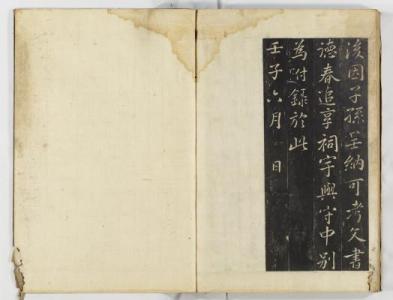 後因子孫妄納可考久書
德春追享祠宇與守中別
為附錄於此
壬子六月 日